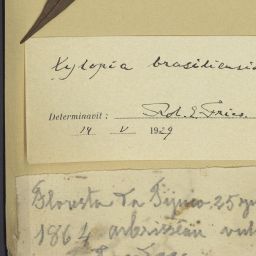 Xylopia brasiliensis
Determinavit: Rob. E. Fries.
14 V 1929
Floresta da Tijuca 25
1864 arbrisseau